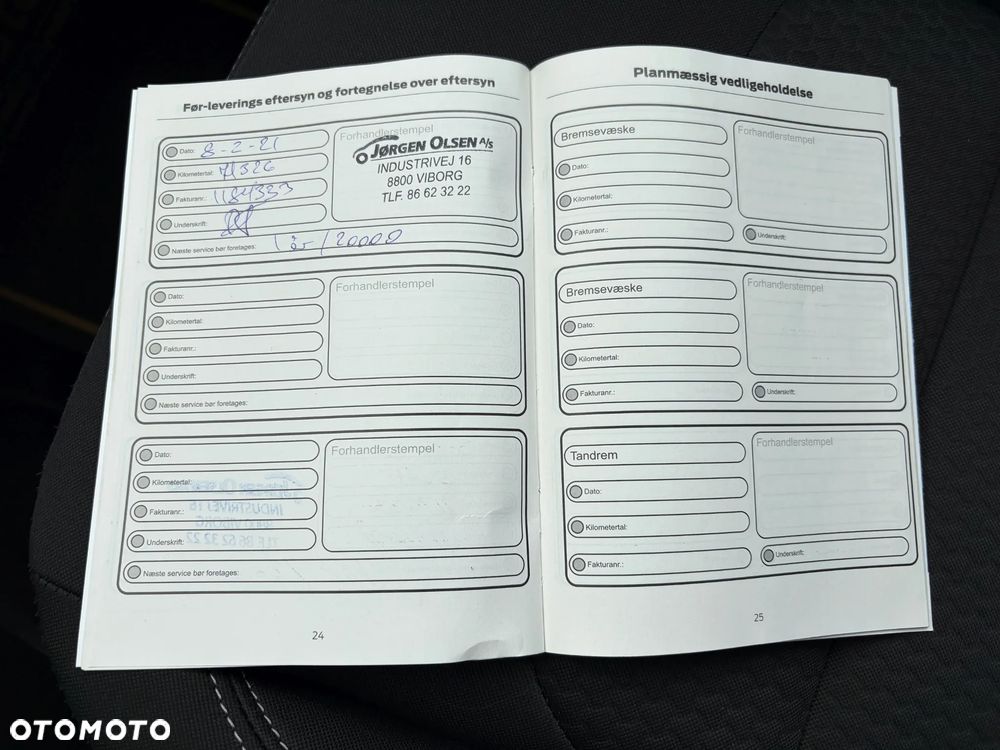 Før-leverings eftersyn og fortegnelse over eftersyn
Dato: 8-2-21
Kilometertal: 71326
Fakturanr.: 1184333
Underskrift:
Næste service bør foretages: 1 år / 20000
Forhandlerstempel
JØRGEN OLSEN A/S
INDUSTRIVEJ 16
8800 VIBORG
TLF. 86 62 32 22
Dato:
Kilometertal:
Fakturanr.:
Underskrift:
Næste service bør foretages:
Forhandlerstempel
Dato:
Kilometertal:
Fakturanr.:
Underskrift:
Næste service bør foretages:
Forhandlerstempel
24
Planmæssig vedligeholdelse
Bremsevæske
Dato:
Kilometertal:
Fakturanr.:
Forhandlerstempel
Underskrift:
Bremsevæske
Dato:
Kilometertal:
Fakturanr.:
Forhandlerstempel
Underskrift:
Tandrem
Dato:
Kilometertal:
Fakturanr.:
Forhandlerstempel
Underskrift:
25
OTOMOTO